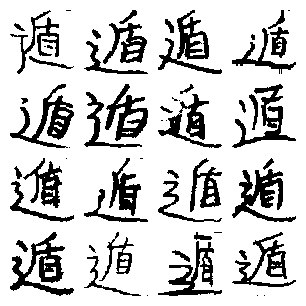 遁遁遁遁
遁遁遁遁
遁遁遁遁
遁遁遁遁